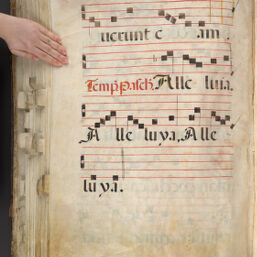 uerunt e am.
Temp. pasch. Alle luia.
A lle lu ya, Alle
lu ya.